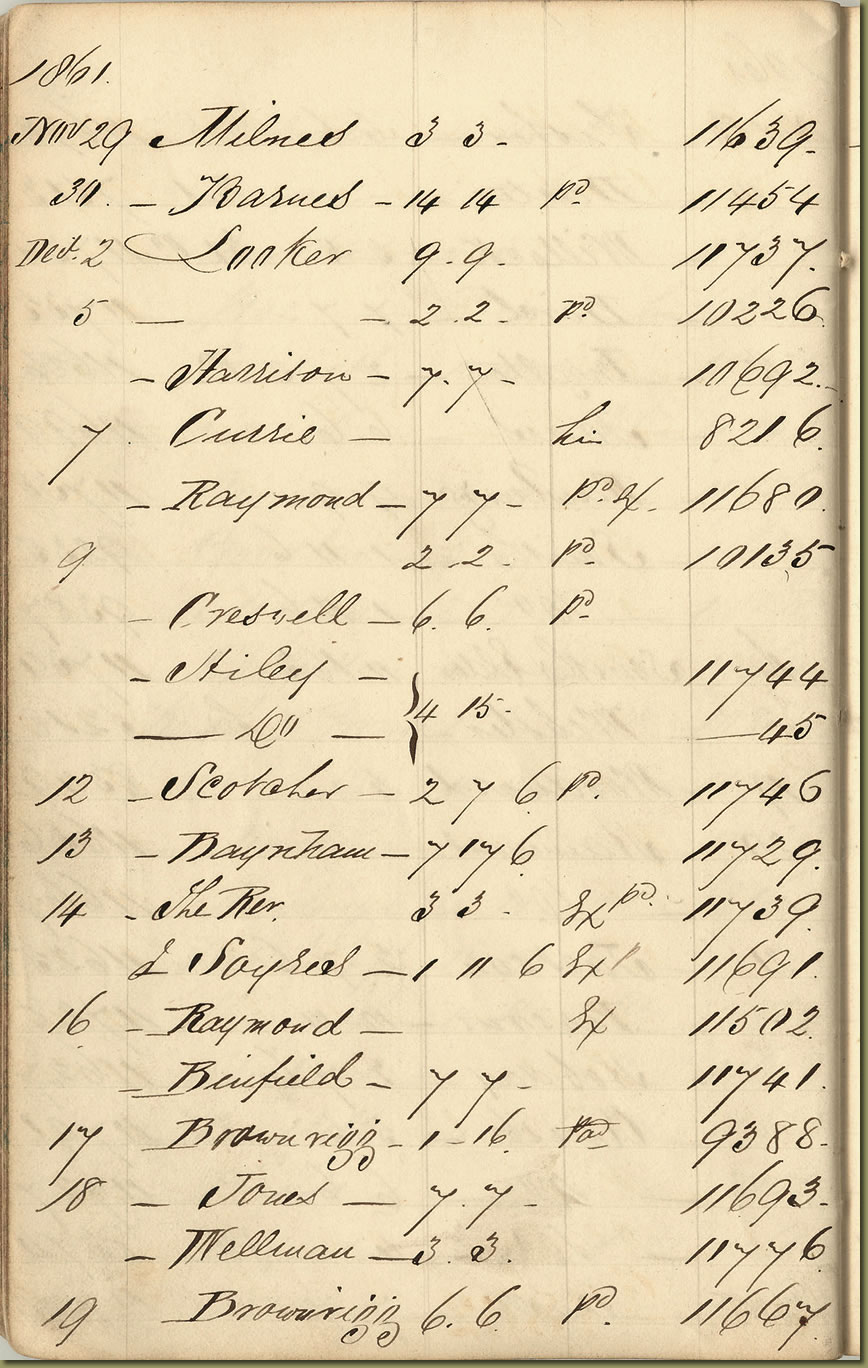 1861.
Nov 29 Milnes 3 3 - 11639.
30. - Barnes - 14 14 pd. 11454
Dec. 2 Looker 9. 9. 11737.
5 — - 2. 2. pd. 10226.
- Harrison - 7. 7 - 10692.
7. Currie — 8216.
- Raymond - 7 7 - pd. Ex. 11680.
9 2. 2. pd. 10135
- Creswell - 6. 6. pd.
- Hiley - 11744
— Do — } 4 15 - — 45
12 - Scotcher - 2 7 6 pd. 11746
13 - Baynham - 7 17 6 11729.
14 - The Rev. 3 3 - Ex pd. 11739.
- 1 11 6 Ex 11691.
16 - Raymond - Ex 11502.
- Binfield - 7 7 - 11741.
17 Brownrigg - 1 - 16. 9388.
18 - Jones — 7. 7. - 11693.
- Wellman - 3. 3. 11776
19 Brownrigg 6. 6. pd. 11667.